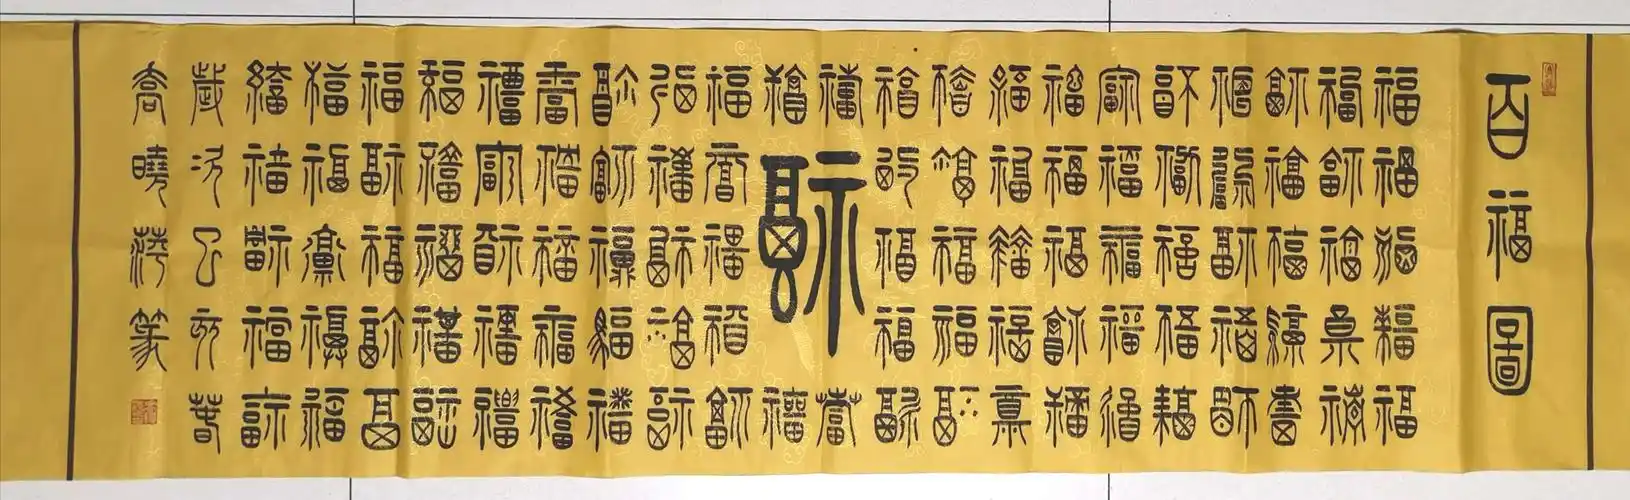 百福圖
福福福福福
福福福福福
福福福福福
福福福福福
福福福福福
福福福福福
福福福福福
福福福福福
福福福福福
福福福福福
福福
福
福福
福福福福福
福福福福福
福福福福福
福福福福福
福福福福福
福福福福福
福福福福福
福福福福福
福福福福福
歲次己亥春
喬曉萍篆